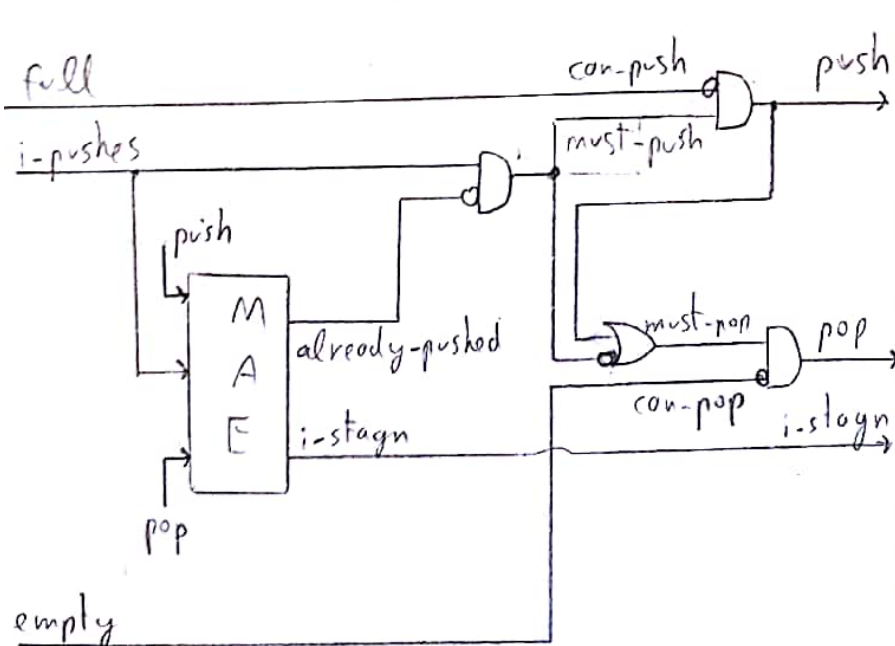 full
can-push
push
i-pushes
must-push
push
M
A
E
already-pushed
must-pop
pop
can-pop
i-stagn
i-stagn
pop
empty